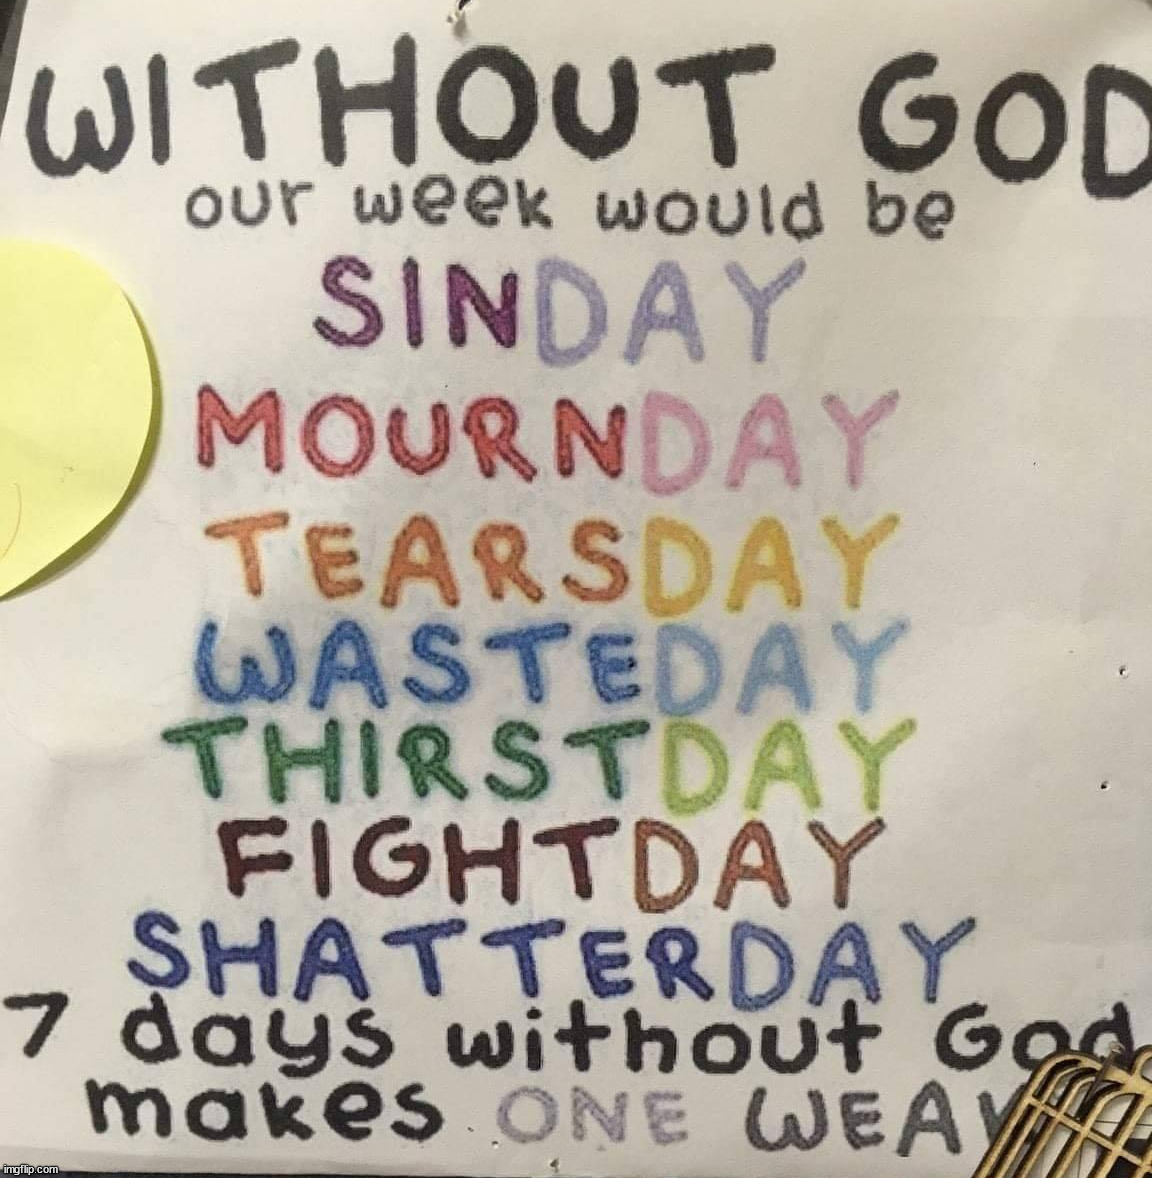 WITHOUT GOD
our week would be
SINDAY
MOURNDAY
TEARSDAY
WASTEDAY
THIRSTDAY
FIGHTDAY
SHATTERDAY
7 days without God
makes ONE
imgflip.com